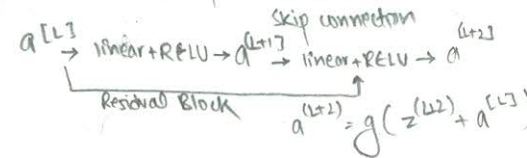 Skip connection
a[L] → linear+RELU → a[L+1] → linear+RELU → a[L+2]
Residual Block
a(L+2) = g(z(L+2) + a[L]